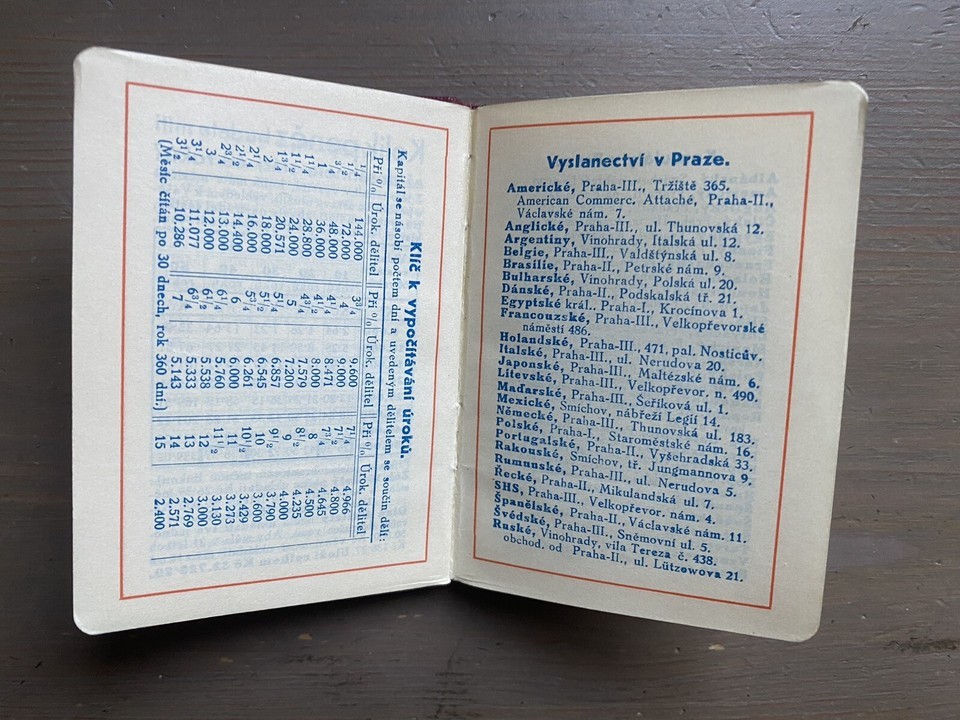 Klíč k vypočítávání úroků.
Kapitál se násobí počtem dní a uvedeným dělitelem se součin dělí:
Při % Úrok. dělitel Při % Úrok. dělitel Při % Úrok. dělitel
1/4 144.000 3 3/4 9.600 7 1/4 4.966
1/2 72.000 4 9.000 7 1/2 4.800
3/4 48.000 4 1/4 8.471 7 3/4 4.645
1 36.000 4 1/2 8.000 8 4.500
1 1/4 28.800 4 3/4 7.579 8 1/2 4.235
1 1/2 24.000 5 7.200 9 4.000
1 3/4 20.571 5 1/4 6.857 9 1/2 3.790
2 18.000 5 1/2 6.545 10 3.600
2 1/4 16.000 5 3/4 6.261 10 1/2 3.429
2 1/2 14.400 6 6.000 11 3.273
2 3/4 13.000 6 1/4 5.760 11 1/2 3.130
3 12.000 6 1/2 5.538 12 3.000
3 1/4 11.077 6 3/4 5.333 13 2.769
3 1/2 10.286 7 5.143 14 2.571
15 2.400
(Měsíc čítán po 30 dnech, rok 360 dní.)
Vyslanectví v Praze.
Americké, Praha-III., Tržiště 365.
American Commerc. Attaché, Praha-II.,
Václavské nám. 7.
Anglické, Praha-III., ul. Thunovská 12.
Argentiny, Vinohrady, Italská ul. 12.
Belgie, Praha-III., Valdštýnská ul. 8.
Brasílie, Praha-II., Petrské nám. 9.
Bulharské, Vinohrady, Polská ul. 20.
Dánské, Praha-II., Podskalská tř. 21.
Egyptské král., Praha-I., Krocínova 1.
Francouzské, Praha-III., Velkopřevorské
náměstí 486.
Holandské, Praha-III., 471, pal. Nosticův.
Italské, Praha-III., ul. Nerudova 20.
Japonské, Praha-III., Maltézské nám. 6.
Litevské, Praha-III., Velkopřevor. n. 490.
Maďarské, Praha-III., Šeříková ul. 1.
Mexické, Smíchov, nábřeží Legií 14.
Německé, Praha-III., Thunovská ul. 183.
Polské, Praha-I., Staroměstské nám. 16.
Portugalské, Praha-II., Vyšehradská 33.
Rakouské, Smíchov, tř. Jungmannova 9.
Rumunské, Praha-III., ul. Nerudova 5.
Řecké, Praha-II., Mikulandská ul. 7.
SHS, Praha-III., Velkopřevor. nám. 4.
Španělské, Praha-II., Václavské nám. 11.
Švédské, Praha-III., Sněmovní ul. 5.
Ruské, Vinohrady, vila Tereza č. 438.
obchod. od Praha-II., ul. Lützowova 21.